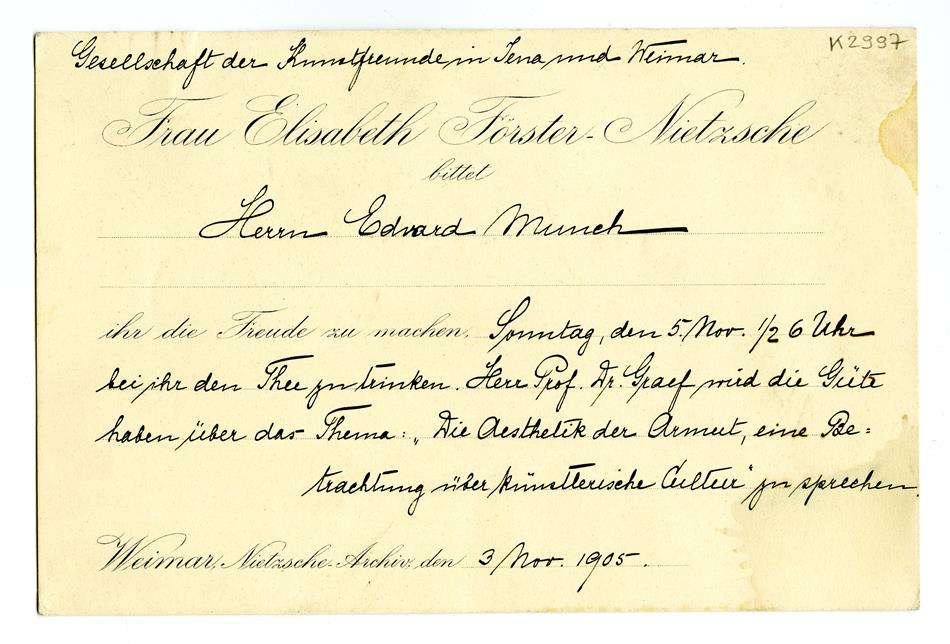 K2997
Gesellschaft der Kunstfreunde in Jena und Weimar.
Frau Elisabeth Förster-Nietzsche
bittet
Herrn Edvard Munch
ihr die Freude zu machen. Sonntag, den 5. Nov. 1/2 6 Uhr
bei ihr den Thee zu trinken. Herr Prof. Dr. Graef wird die Güte
haben über das Thema: „Die Aesthetik der Armut, eine Be=
trachtung über künstlerische Cultur" zu sprechen.
Weimar, Nietzsche-Archiv, den 3 Nov. 1905.